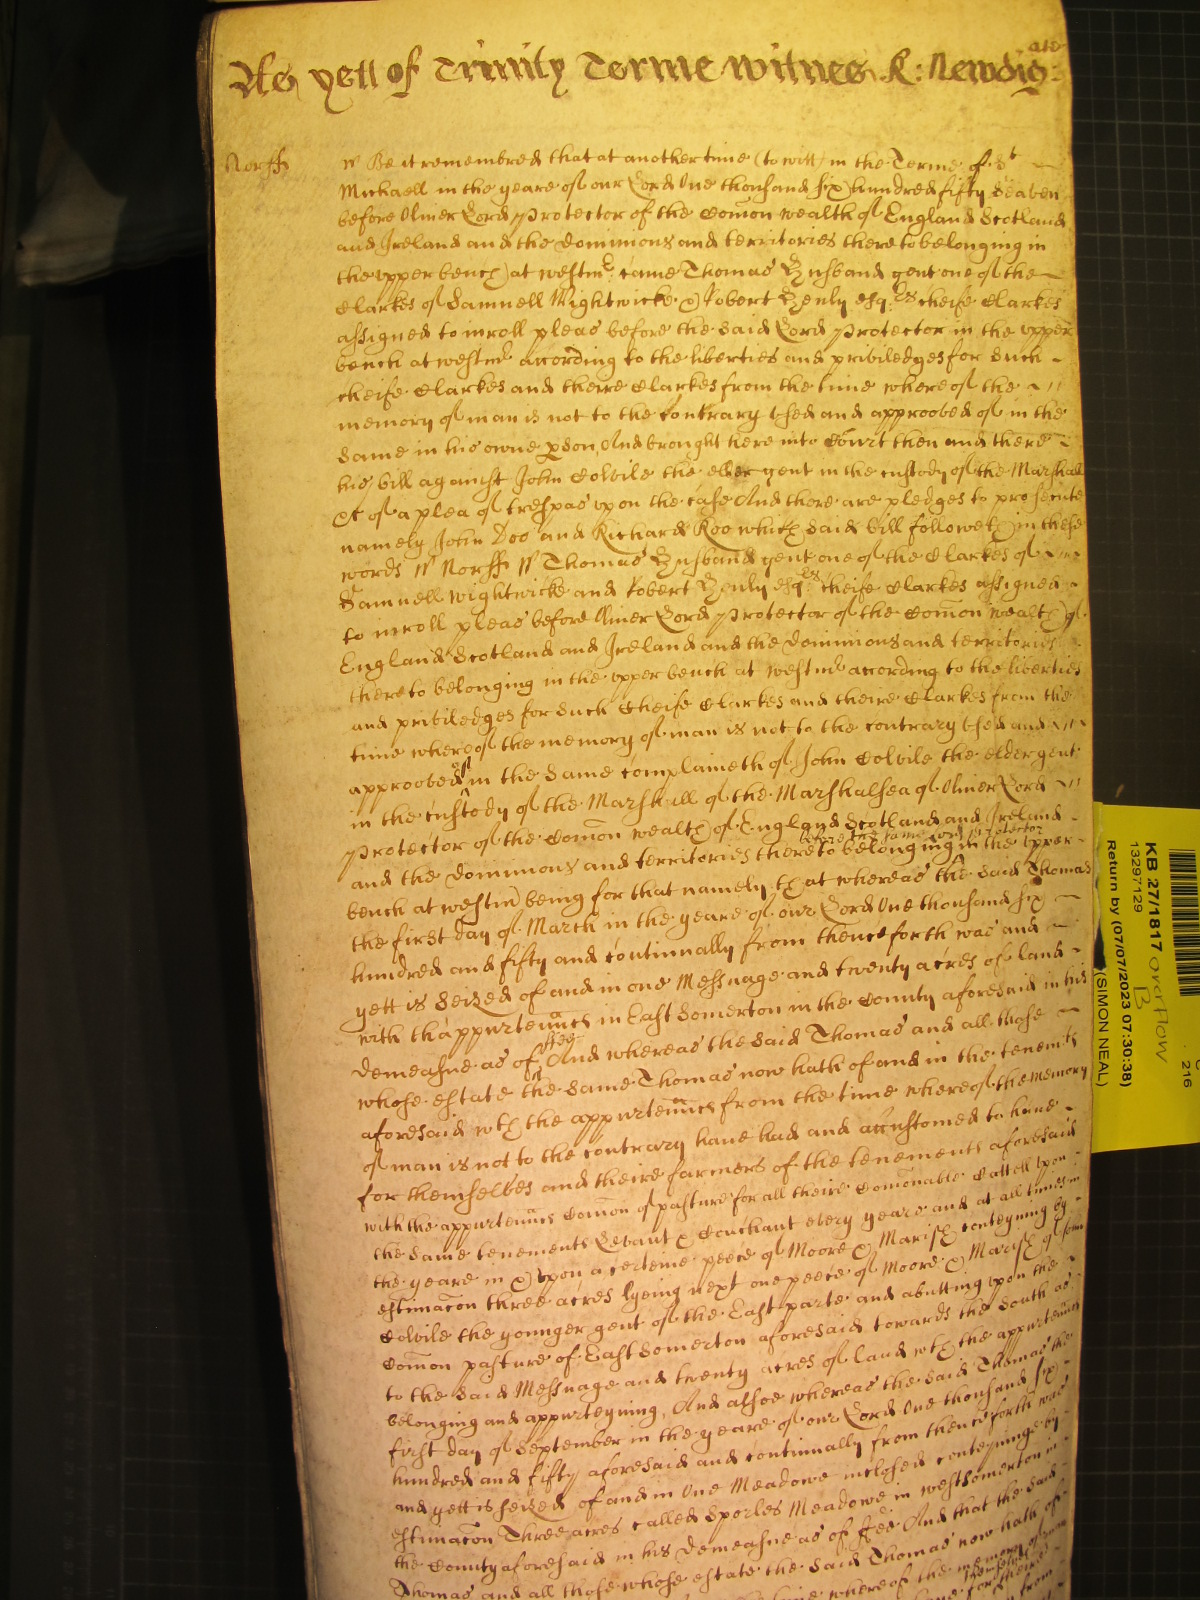 As yett of Trinity Terme witnes R: Newdigate
Norff
Be it remembred that at another time (to witt) in the Terme of St
Michaell in the yeare of our Lord One thousand six hundred fifty Seaven
before Oliver Lord Protector of the Comon wealth of England Scotland
and Ireland and the Dominions and territories thereto belonging in
the upper bench at Westmr came Thomas Husband gent one of the
Clarkes of Samuell Wightwicke & Robert Henly Esqrs cheife Clarkes
assigned to inroll pleas before the said Lord Protector in the upper
bench at Westmr according to the liberties and priviledges for such
cheife Clarkes and theire Clarkes from the time whereof the
memory of man is not to the contrary used and approoved of in the
same in his owne pson And brought here into Court then and there
his bill against John Colvile the elder gent in the custody of the Marshall
&c of a plea of trespas upon the case And there are pledges to prosecute
namely John Doo and Richard Roo which said bill followeth in these
words Norff Thomas Husband gent one of the Clarkes of
Samuell Wightwicke and Robert Henly Esqrs cheife Clarkes assigned
to inroll pleas before Oliver Lord Protector of the Comon wealth of
England Scotland and Ireland and the Dominions and territories
thereto belonging in the upper bench at Westmr according to the liberties
and priviledges for such Cheife Clarkes and theire Clarkes from the
time whereof the memory of man is not to the contrary used and
approoved of in the same complaineth of John Colvile the elder gent
in the custody of the Marshall of the Marshalsea of Oliver Lord
Protector of the Comon wealth of England Scotland and Ireland
before the same Lord Protector
and the Dominions and territories thereto belonging in the upper
bench at Westmr being for that namely that whereas the said Thomas
the first day of March in the yeare of our Lord One thousand six
hundred and fifty and continually from thenceforth was and
yett is seized of and in one Messuage and twenty acres of land
with thappurtenncs in East Somerton in the County aforesaid in his
demeasne as of ffee And whereas the said Thomas and all those
whose estate the same Thomas now hath of and in the tenemts
aforesaid wth the appurtenncs from the time whereof the memory
of man is not to the contrary have had and accustomed to have
for themselves and theire farmers of the tenements aforesaid
with the appurtenncs Comon of pasture for all theire Comonable Cattell upon
the same tenements Levant & Couchant every yeare and at all times in
the yeare in & upon a certeine peece of Moore & Marish conteyning by
estimacon three acres lyeing next one peece of Moore & Marish of John
Colvile the younger gent of the East parte and abutting upon the
Comon pasture of East Somerton aforesaid towards the South as
to the said Messuage and twenty acres of land wth the appurtenncs
belonging and apperteyning, And alsoe whereas the said Thomas the
first day of September in the yeare of our Lord One thousand six
hundred and fifty aforesaid and continually from thenceforth was
and yett is seized of and in One Meadowe inclosed conteyninge by
estimacon Three acres called Sporles Meadowe in West Somerton in
the County aforesaid in his demeasne as of ffee And that the said
Thomas and all those whose estate the said Thomas now hath of
whereof the memory of man
KB 27/1817 overflow
13297129 B
Return by (07/07/2023 07:30:38)
(SIMON NEAL)
216